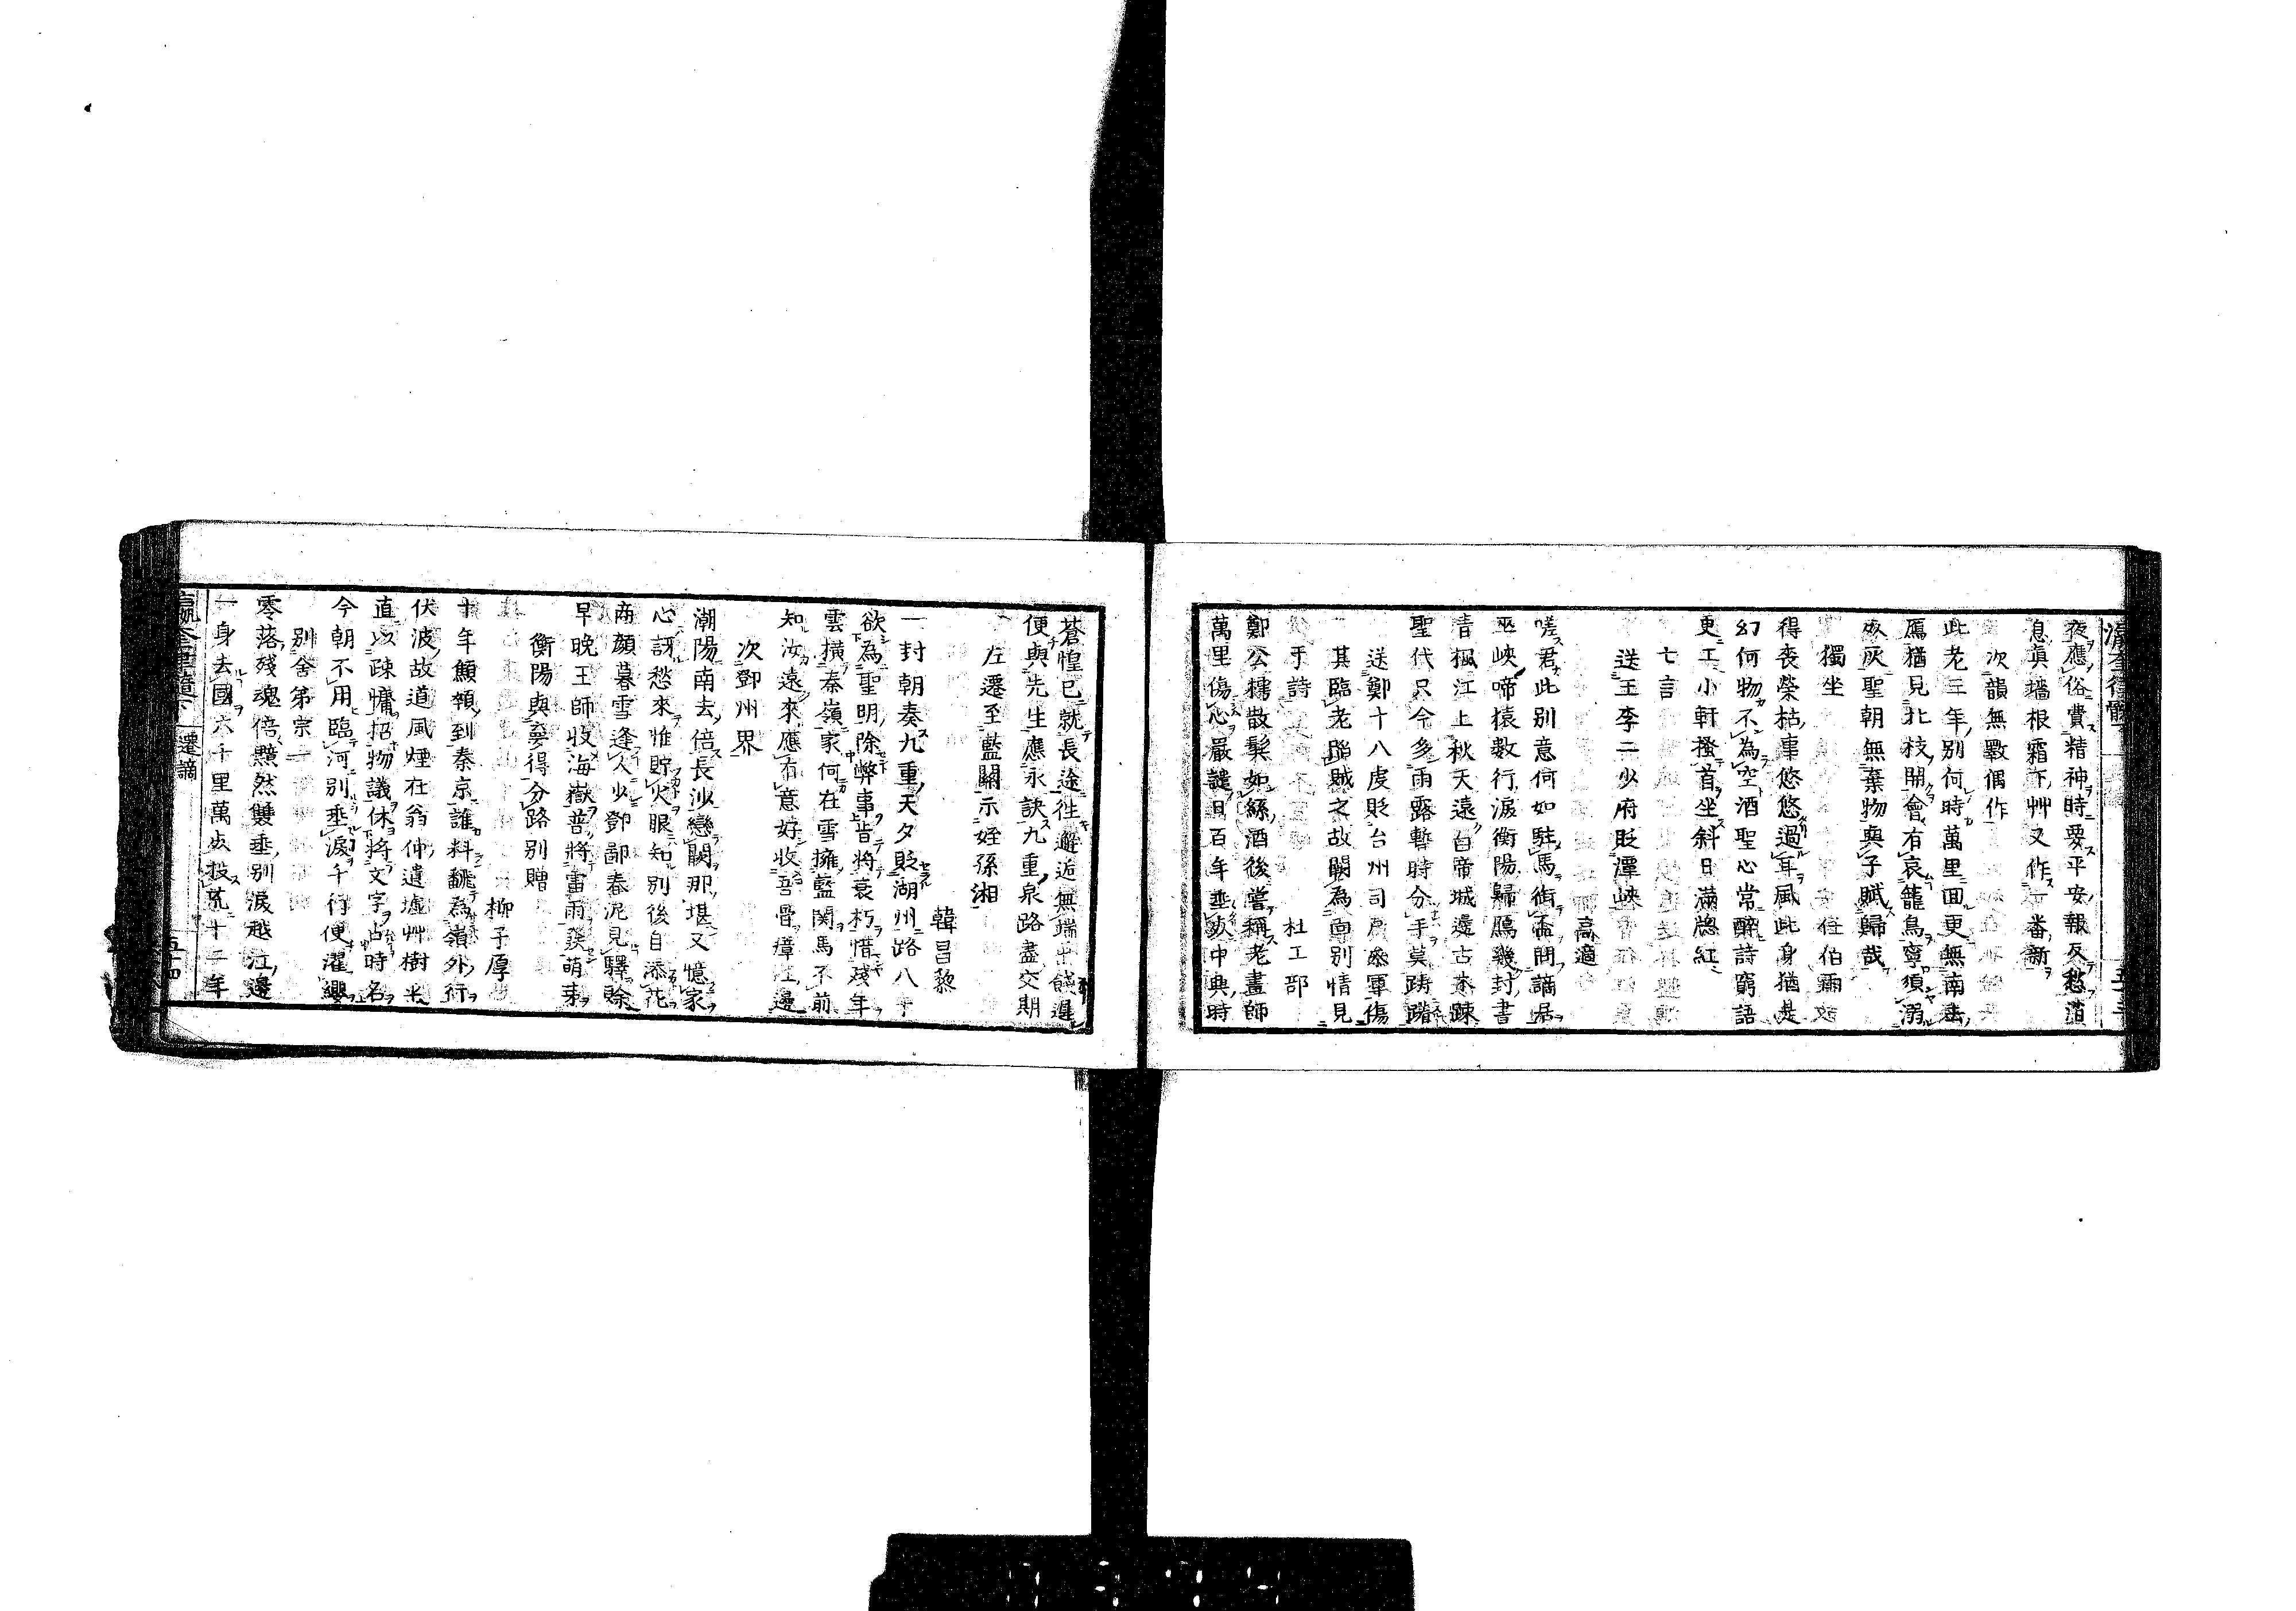 夜應俗貴精神時要平安報反愁消
息真墻根霜亦艸又作一番新
次韻無斁偶作
此老三年別何時萬里回更無南去
鴈猶見北枝開會有哀籠鳥寧須溺
死灰聖朝無棄物與子賦歸哉
獨坐
任伯雨
得喪榮枯事悠悠過耳風此身猶是
幻何物不為空酒聖心常醉詩窮語
更工小軒搔首坐斜日滿牕紅
七言
送王李二少府貶潭峽
高適
嗟君此別意何如駐馬銜盃問謫居
巫峽啼猿數行淚衡陽歸鴈幾封書
清楓江上秋天遠白帝城邊古木踈
聖代只今多雨露暫時分手莫躊躇
送鄭十八虔貶台州司戶參軍傷
其臨老陷賊之故闕為面別情見
于詩
杜工部
鄭公樗散鬓如絲酒後嘗稱老畫師
萬里傷心嚴譴日百年垂死中興時
蒼惶已就長途往邂逅無端出餞遲
便與先生應永訣九重泉路盡交期
左遷至藍關示姪孫湘
韓昌黎
一封朝奏九重天夕貶湖州路八千
欲為聖明除弊事肯將衰朽惜殘年
雲橫秦嶺家何在雪擁藍関馬不前
知汝遠來應有意好收吾骨瘴江邊
次鄧州界
潮陽南去倍長沙戀闕那堪又憶家
心訝愁來惟貯火眼知別後自添花
商顏暮雪逢人少鄧鄙春泥見驛賒
早晚王師收海嶽普將雷雨發萌芽
衡陽與夢得分路別贈
柳子厚
十年顦顇到秦京誰料飜為嶺外行
伏波故道風煙在翁仲遺墟艸樹平
直以疎慵招物議休將文字占時名
今朝不用臨河別垂淚千行便濯纓
別舍弟宗一
零落殘魂倍黯然雙垂別淚越江邊
一身去國六千里萬死投荒十二年
遷謫
五十四